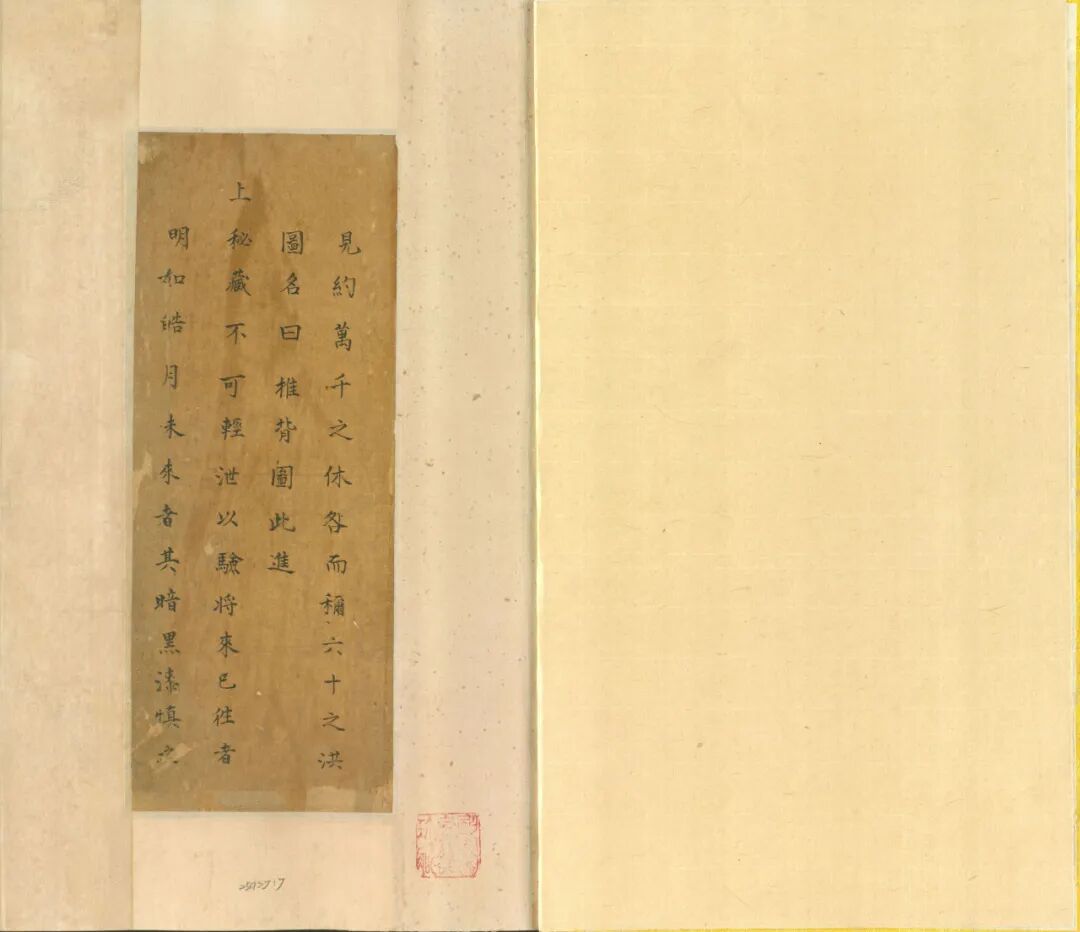 見約萬千之休咎而稱六十之洪
圖名曰推背圖此進
上秘藏不可輕泄以驗将來已徃者
明如皓月未來者其暗黒漆慎之